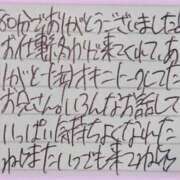 60分でありがとうございました!
お仕事終わりで来てくれて、あ
りがとー
お兄さんのいろんなお話して
いっぱい気持ちよくなれた
ねまたいつでも来てね